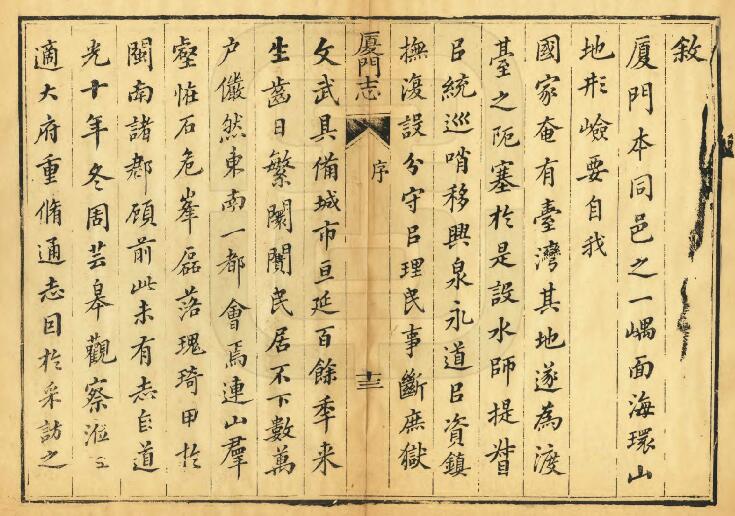 敘
厦門本同邑之一嵎面海環山
地形嶮要自我
國家奄有臺灣其地遂為渡
臺之阨塞於是設水師提督
㠯統巡哨移興泉永道㠯資鎮
撫復設分守㠯理民事斷庶獄
厦門志
序
十三
文武具備城市亘延百餘季来
生齒日繁闤闠民居不下數萬
户儼然東南一都會焉連山羣
壑恠石危峯磊落瑰琦甲於
閩南諸郡顧前此未有志自道
光十年冬周芸皋觀察涖
適大府重脩通志因於采訪之